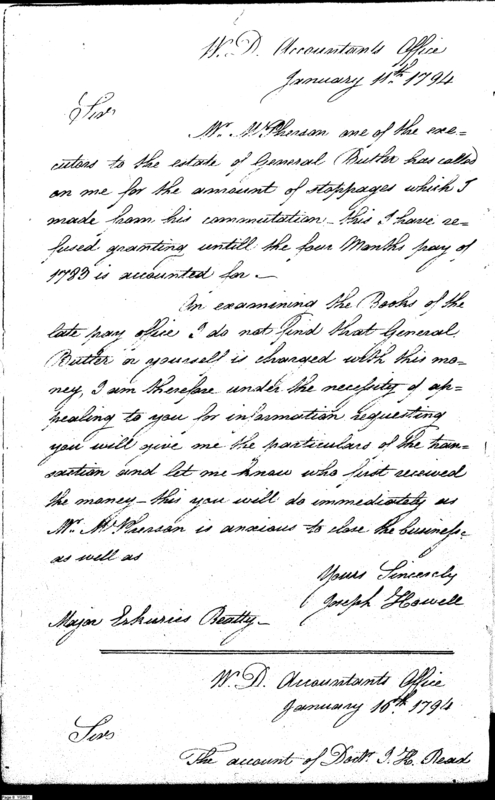 W. D. Accountants Office
January 11th. 1794
Sir
Mr. McPherson one of the exe=
cutors to the estate of General Butler has called
on me for the amount of stoppages which I
made from his commutation - this I have re=
fused granting untill the four Months pay of
1783 is accounted for. -
On examining the Books of the
late pay office I do not find that General
Butler or yourself is charged with this mo=
ney, I am therefore under the necessity of ap=
pealing to you for information requesting
you will give me the particulars of the tran=
saction and let me know who first received
the money - this you will do immediately as
Mr. McPherson is anxious to close the business -
as well as
Yours Sincerely
Joseph Howell
Major Erkuries Beatty -
W. D. Accountants Office
January 16th. 1794
Sir
The account of Doctr. J. H. Read